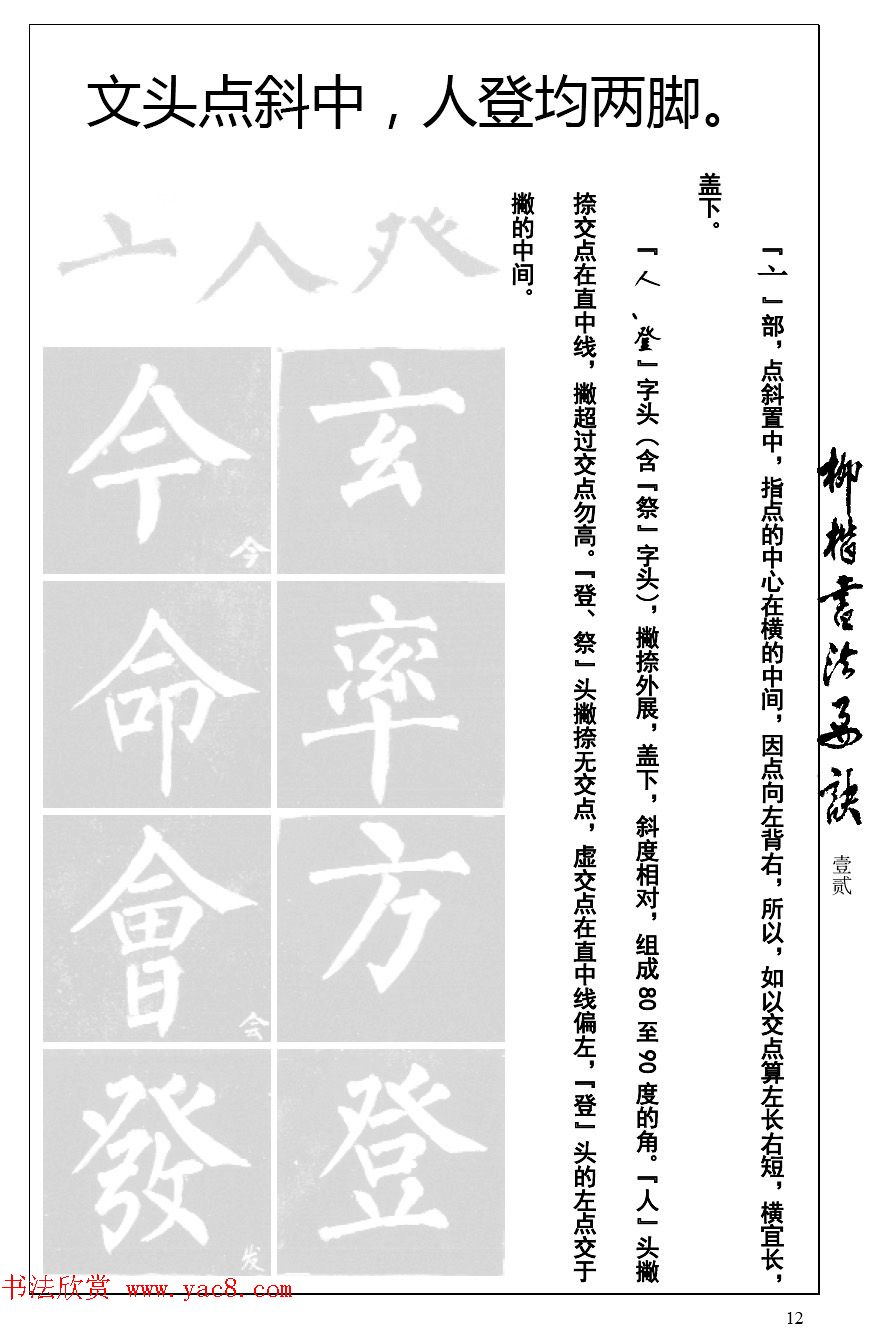 文头点斜中，人登均两脚。
『亠』部，点斜置中，指点的中心在横的中间，因点向左背右，所以，如以交点算左长右短，横宜长，
盖下。
『人、登』字头（含『祭』字头），撇捺外展，盖下，斜度相对，组成80至90度的角。『人』头撇
捺交点在直中线，撇超过交点勿高。『登、祭』头撇捺无交点，虚交点在直中线偏左，『登』头的左点交于
撇的中间。
亠人癶
玄
率
方
登
今今
命
會会
發发
柳楷书法要诀
壹贰
书法欣赏 www.yac8.com
12